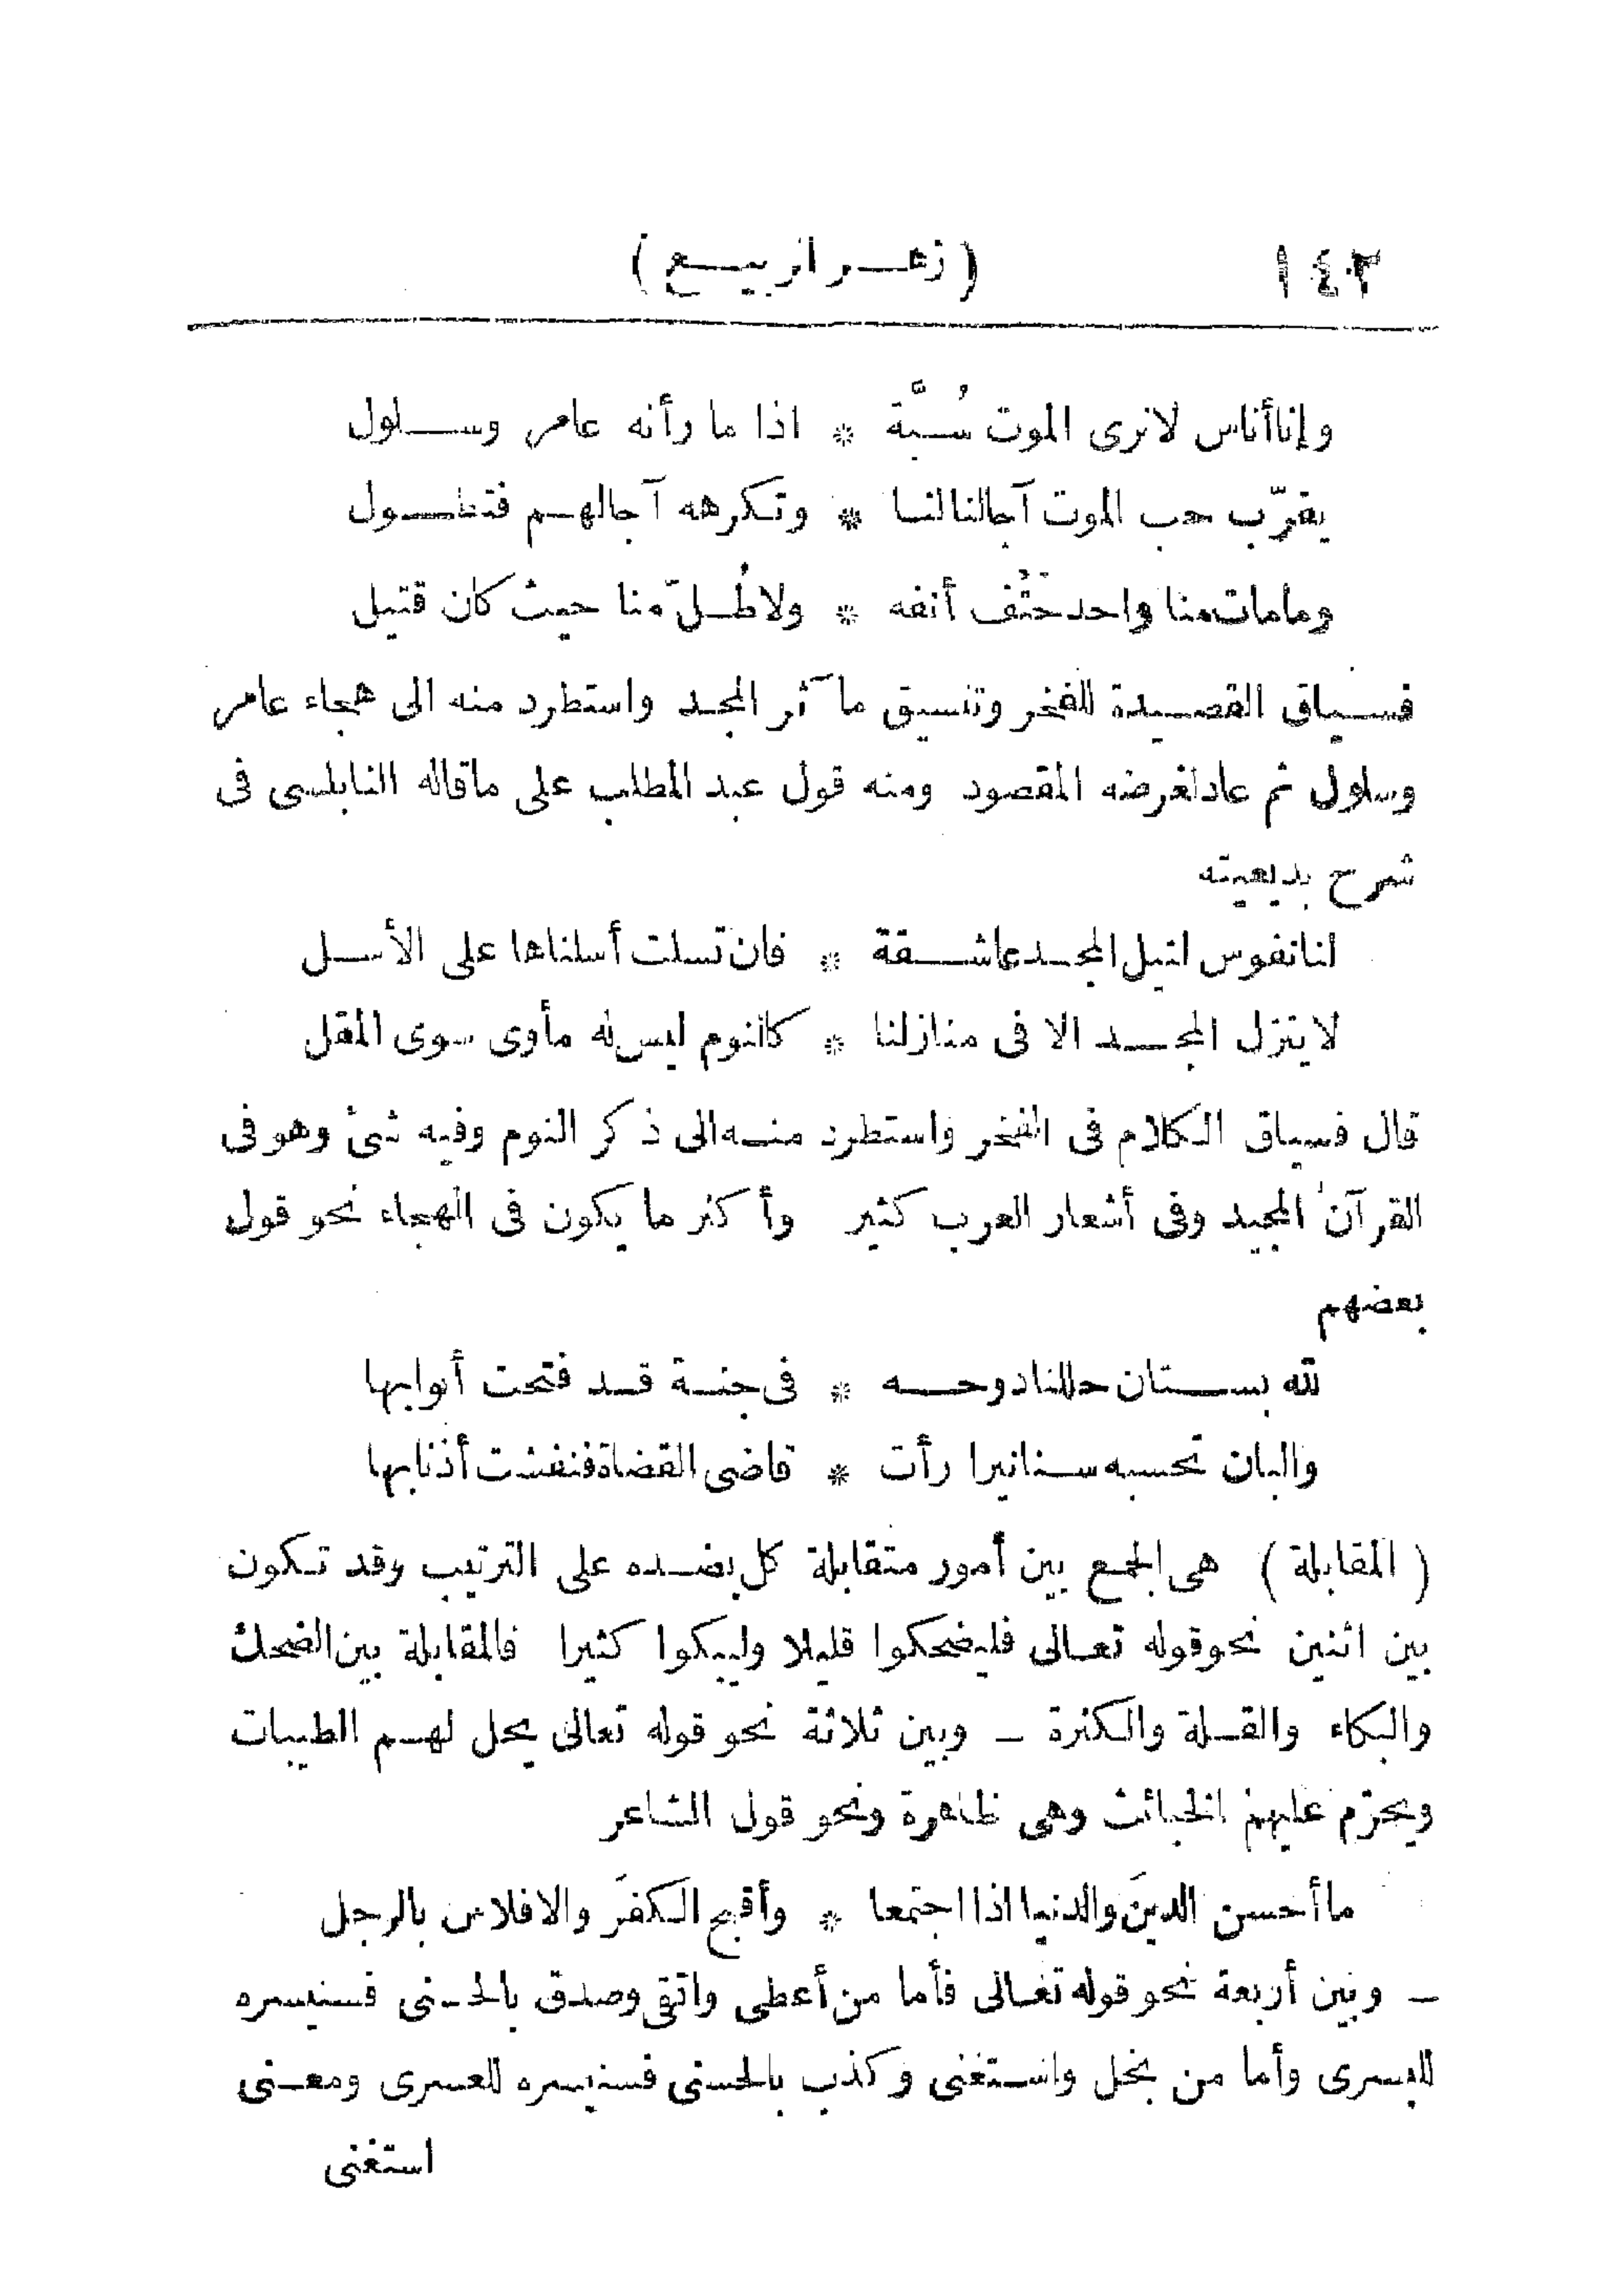 ١٤٢ (زهر الربيع)
وإنا أناس لا نرى الموت سُبَّة * اذا ما رأته عامر وسلول
يقرّب حب الموت آجالنا لنا * وتكرهه آجالهم فتطول
وما مات منا واحد حَتْف أنفه * ولا طُلّ منا حيث كان قتيل
فسياق القصيدة للفخر وتنسيق مآثر المجد واستطرد منه الى هجاء عامر
وسلول ثم عاد لغرضه المقصود ومنه قول عبد المطلب على ما قاله النابلسى فى
شرح بديعيته
لنا نفوس لنيل المجد عاشقة * فان تسلت أسلناها على الأسل
لا ينزل المجد الا فى منازلنا * كالنوم ليس له مأوى سوى المقل
قال فسياق الكلام فى الفخر واستطرد منه الى ذكر النوم وفيه شئ وهو فى
القرآن المجيد وفى أشعار العرب كثير وأكثر ما يكون فى الهجاء نحو قول
بعضهم
لله بستان حللنا دوحه * فى جنة قد فتحت أبوابها
والبان تحسبه سنانيرا رأت * قاضى القضاة فنفشت أذنابها
(المقابلة) هى الجمع بين أمور متقابلة كل بضده على الترتيب وقد تكون
بين اثنين نحو قوله تعالى فليضحكوا قليلا وليبكوا كثيرا فالمقابلة بين الضحك
والبكاء والقلة والكثرة ــ وبين ثلاثة نحو قوله تعالى يحل لهم الطيبات
ويحرّم عليهم الخبائث وهى ظاهرة ونحو قول الشاعر
ما أحسن الدينَ والدنيا اذا اجتمعا * وأقبح الكفرَ والافلاس بالرجل
ــ وبين أربعة نحو قوله تعالى فأما من أعطى واتقى وصدق بالحسنى فسنيسره
لليسرى وأما من بخل واستغنى وكذب بالحسنى فسنيسره للعسرى ومعنى
استغنى